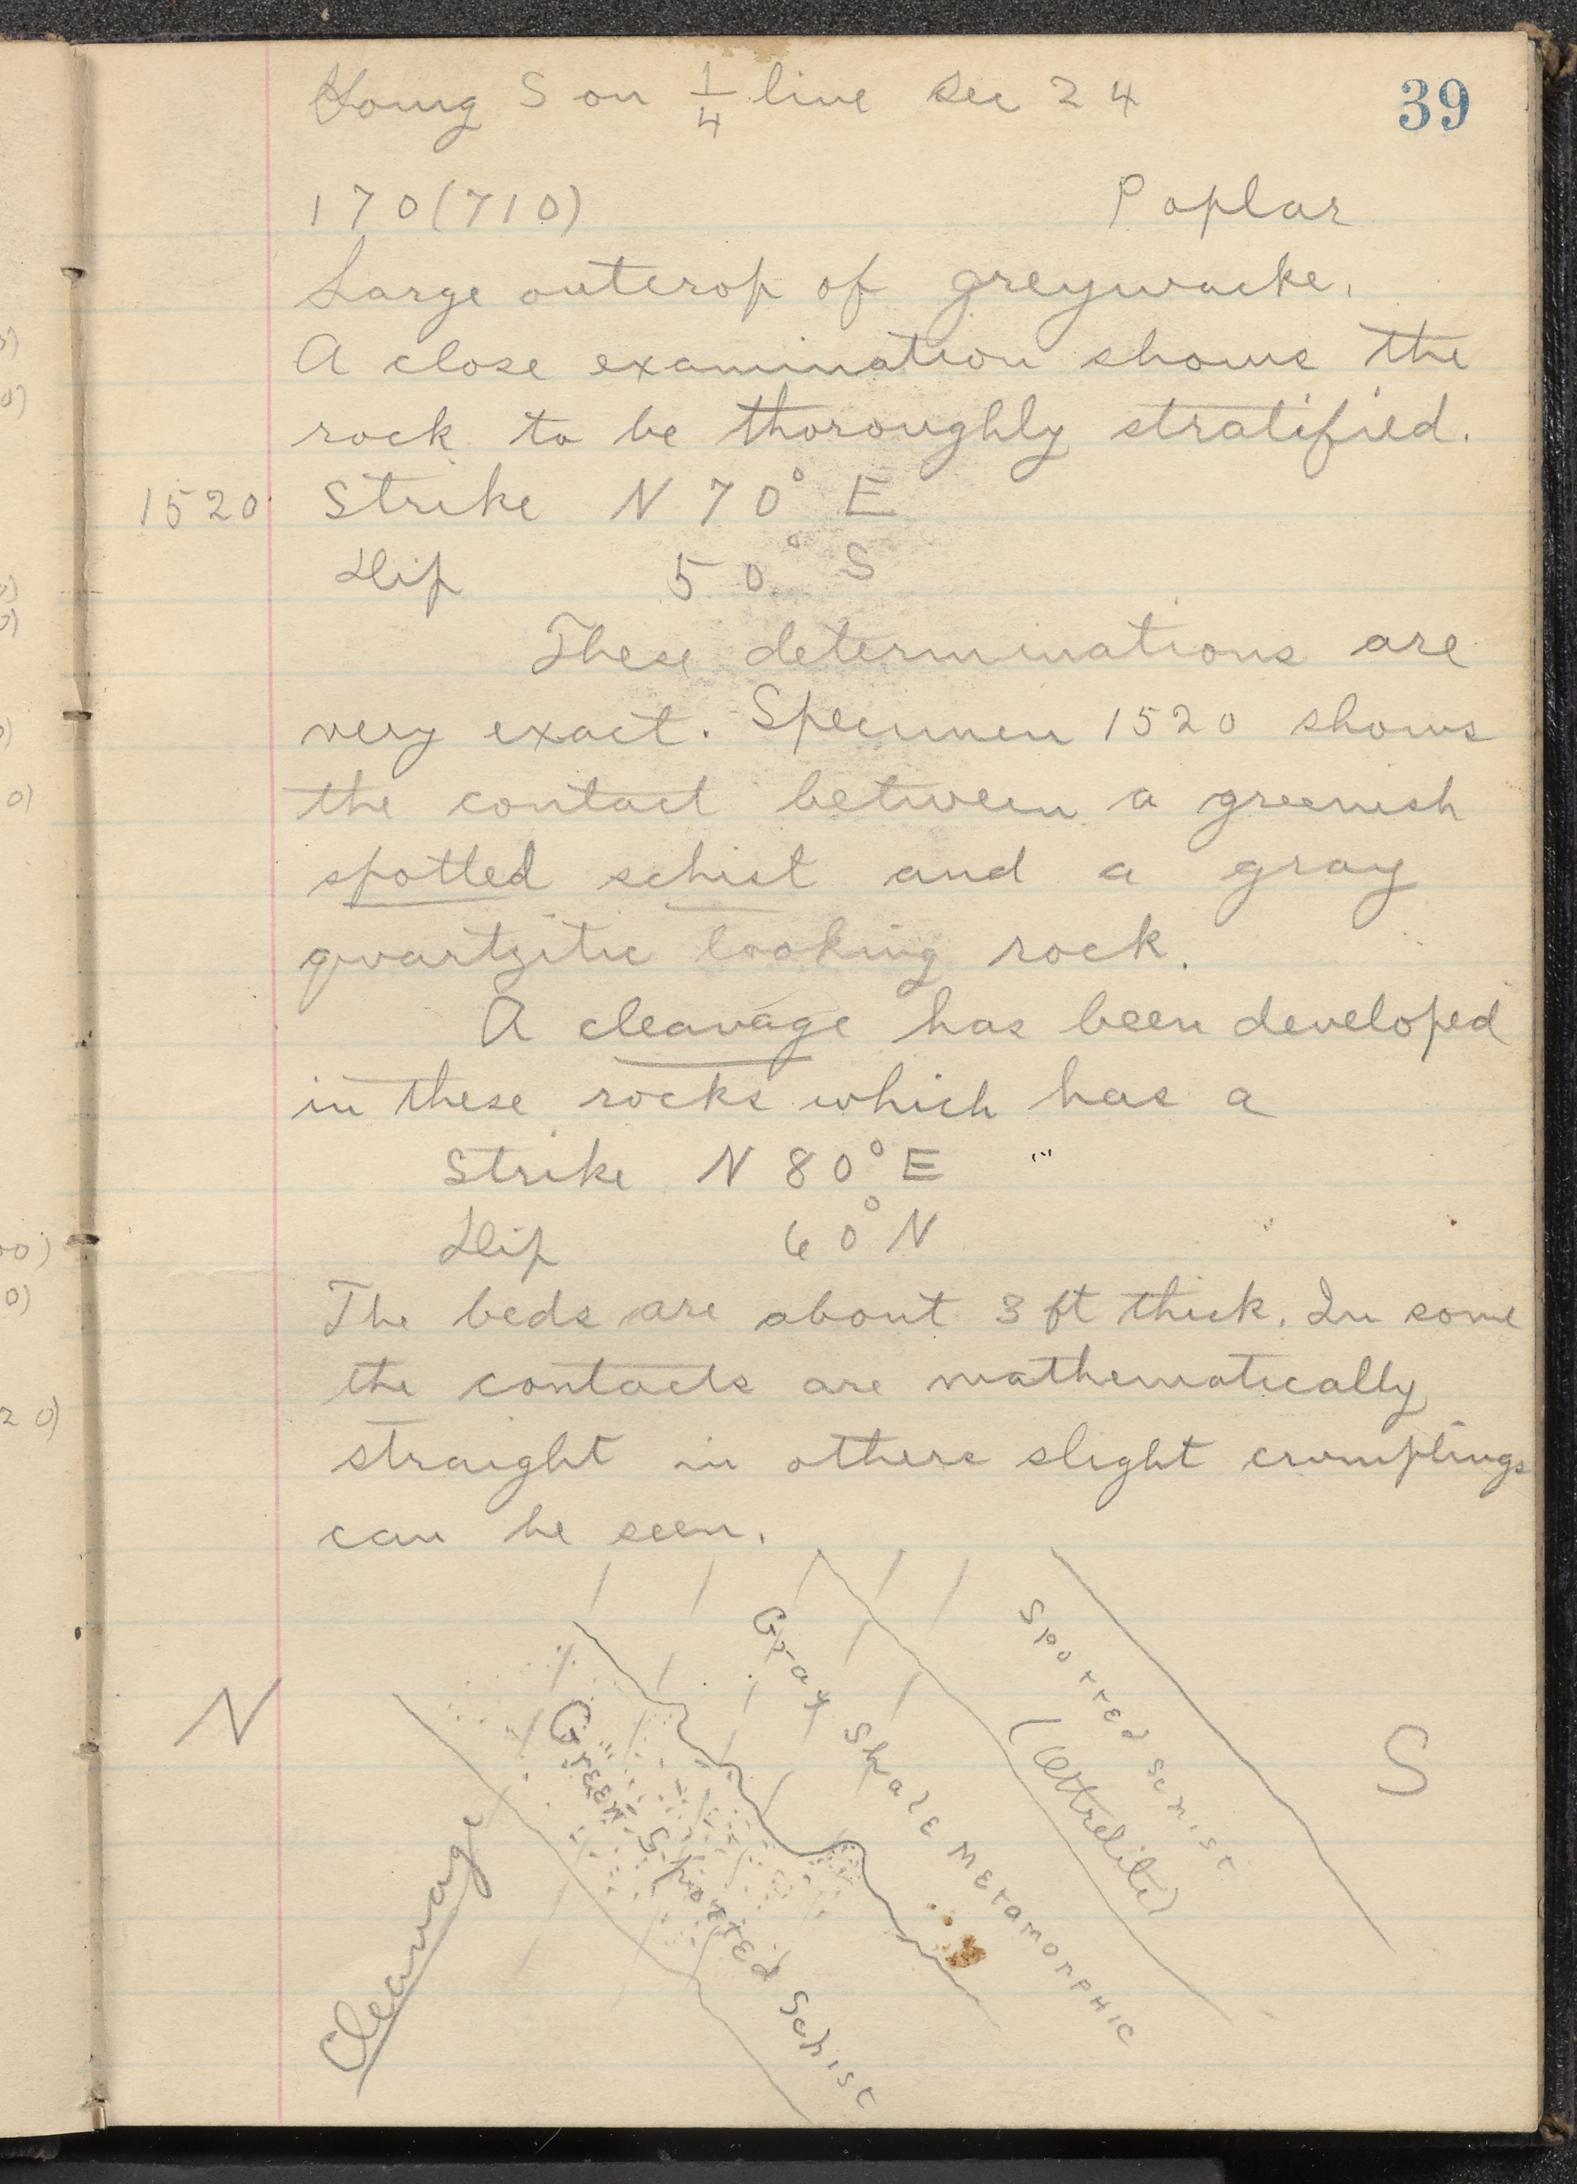 Going S on 1/4 line Sec 24
39
170 (710) Poplar
Large outcrop of greywacke.
A close examination shows the
rock to be thoroughly stratified.
1520 Strike N 70° E
Dip 50° S
These determinations are
very exact. Specimen 1520 shows
the contact between a greenish
spotted schist and a gray
quartzitic looking rock.
A cleavage has been developed
in these rocks which has a
Strike N 80° E
Dip 60° N
The beds are about 3 ft thick. In some
the contacts are mathematically
straight in others slight crumplings
can be seen.
N
Cleavage
Green Spotted Schist
Gray Shale Metamorphic
Spotted Schist
(Ottrelite)
S